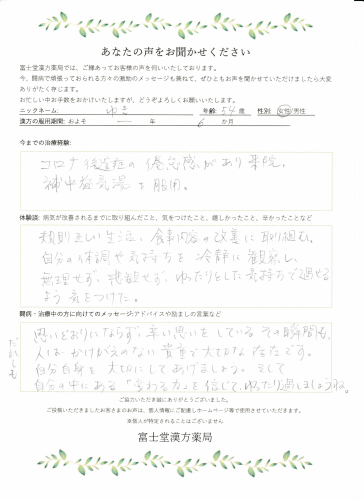 あなたの声をお聞かせください
富士堂漢方薬局では、ご縁あってお客様の声を伺いいたしております。
今、闘病で頑張っておられる方々の激励のメッセージも兼ねて、ぜひともお声を聞かせていただけましたら大変
ありがたく存じます。
お忙しい中お手数をおかけいたしますが、どうぞよろしくお願いいたします。
ニックネーム: ゆき 年齢: 54 歳 性別: 女性/男性
漢方の服用期間: およそ ― 年 6 か月
今までの治療経験:
コロナ後遺症の倦怠感があり来院。
補中益気湯を服用。
体験談: 病気が改善されるまでに取り組んだこと、気をつけたこと、嬉しかったこと、辛かったことなど
規則正しい生活、食事内容の改善に取り組む。
自分の体調や気持ちを冷静に観察し、
無理せず、悲観せず、ゆったりとした気持ちで過せる
よう気をつけた。
闘病・治療中の方に向けてのメッセージ:アドバイスや励ましの言葉など
思いどおりにならず、辛い思いをしているその瞬間も、
だれしも
人は、かけがえのない貴重で大切な存在です。
自分自身を大切にしてあげましょう。そして
自分の中にある「変わる力」を信じて、ゆったり過しましょうね。
ご協力いただき誠にありがとうございました。
ご投稿いただきましたお客さまのお声は、個人情報にご配慮しホームページ等で使用させていただきます。
※個人が特定されることはございません
富士堂漢方薬局